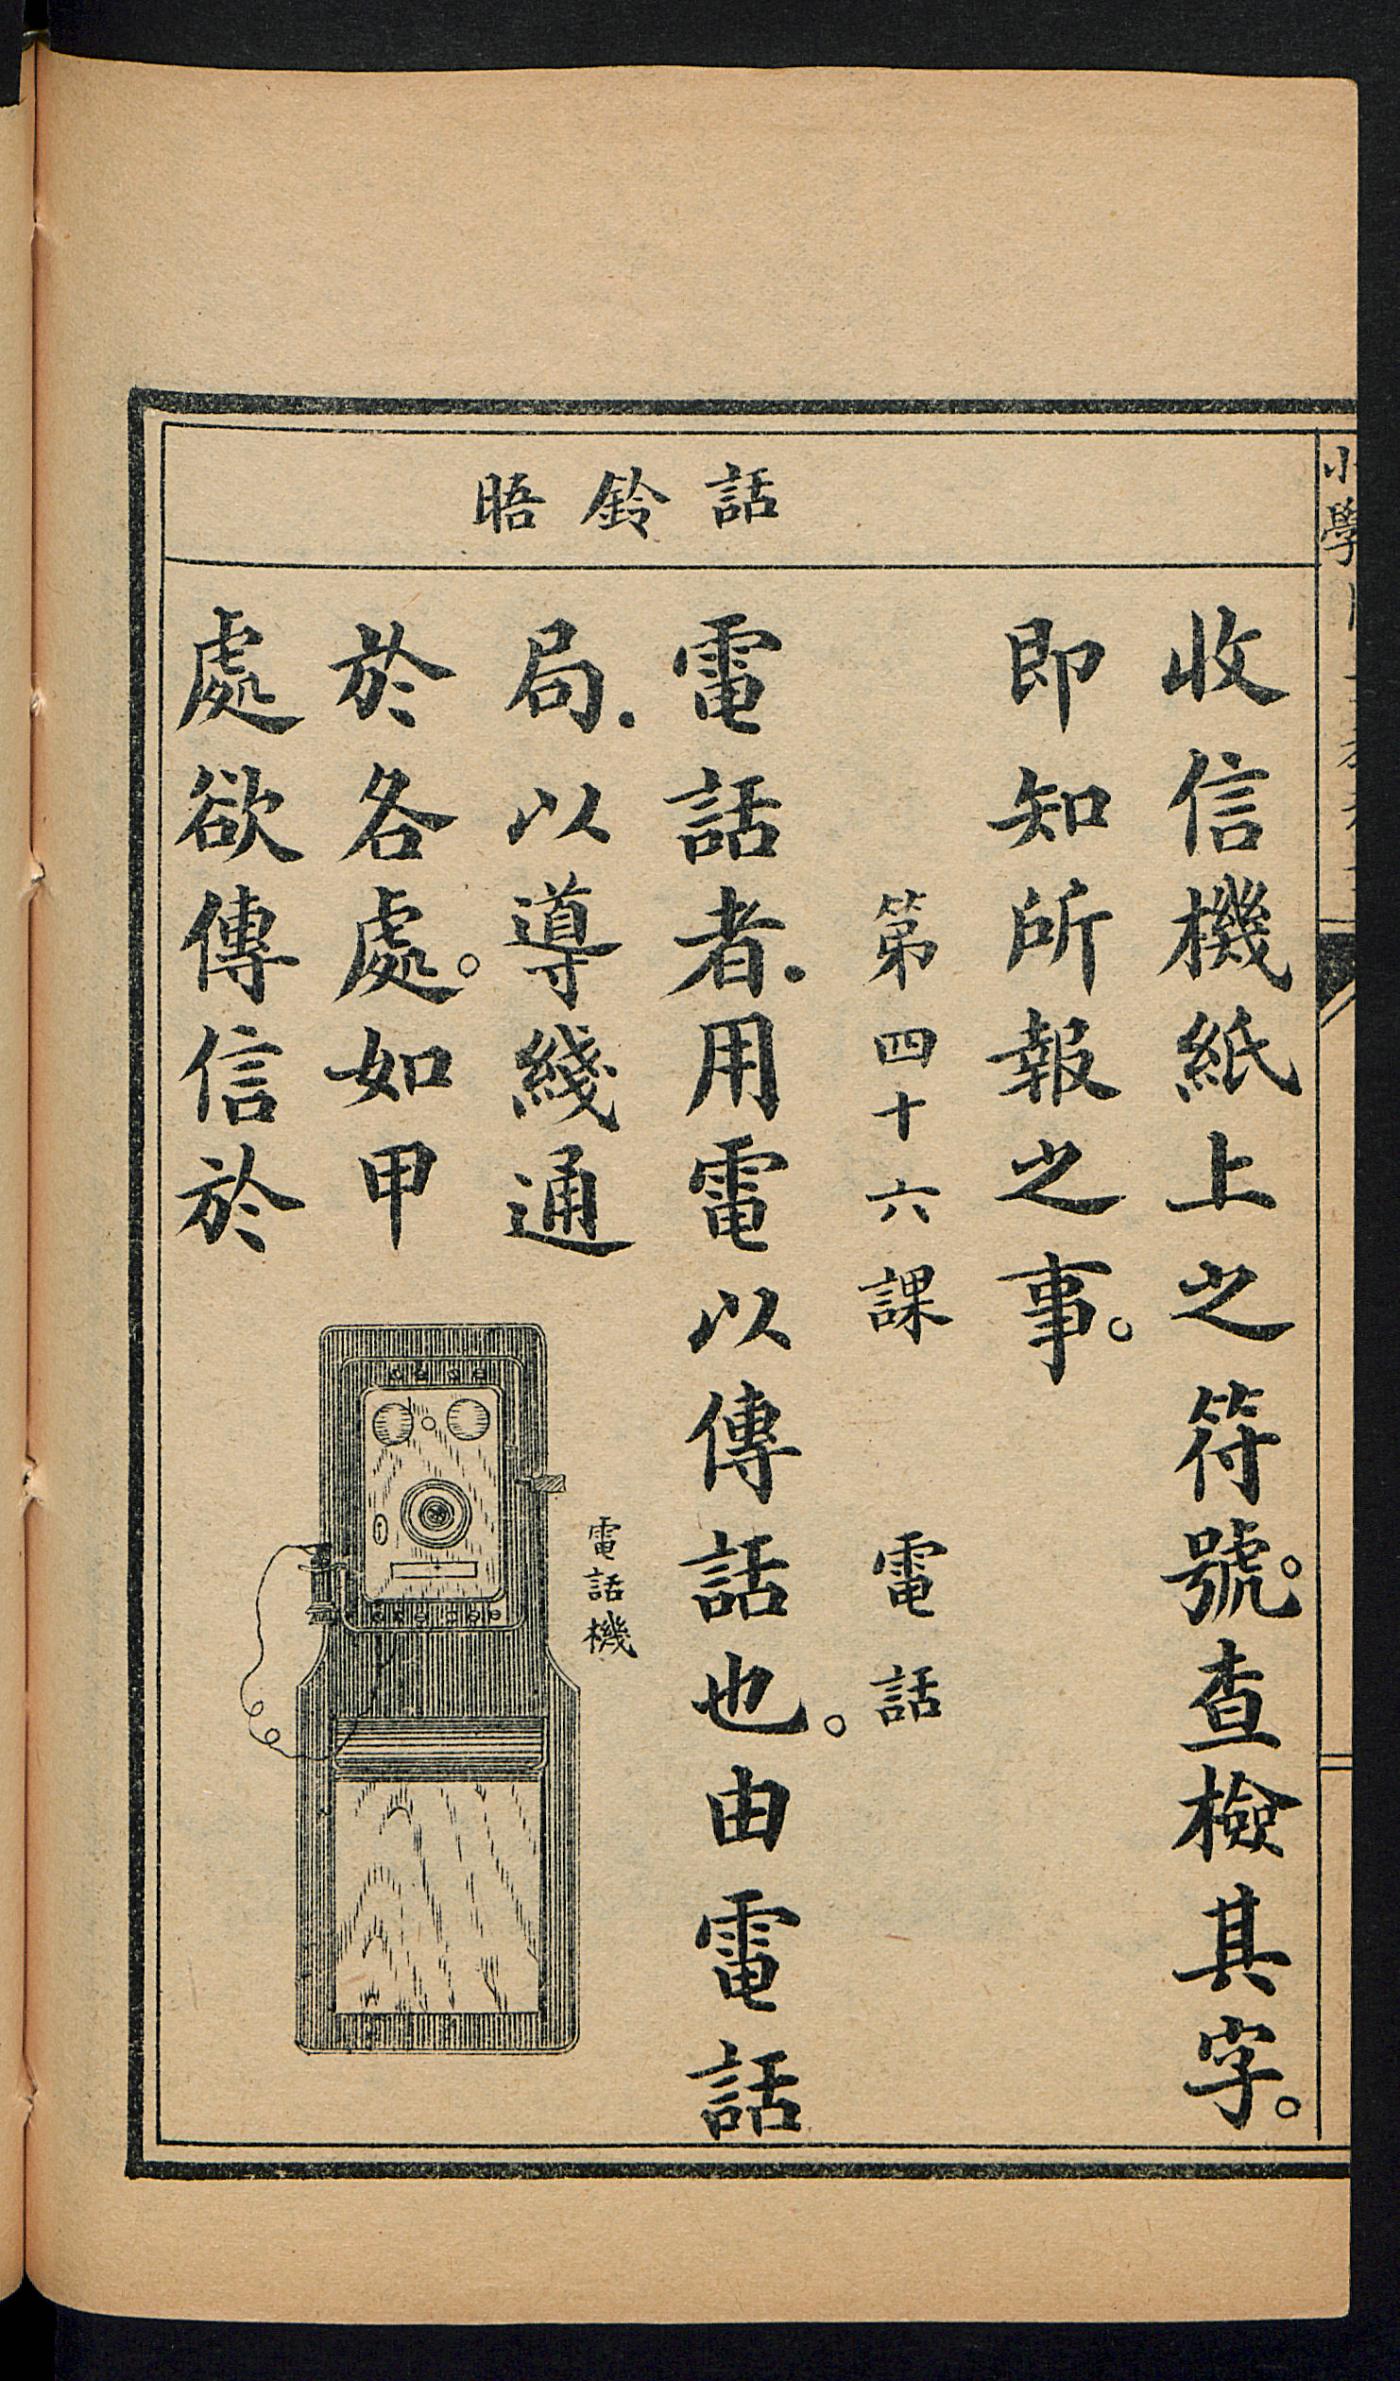 小學
話鈴晤
收信機紙上之符號。查檢其字。
即知所報之事。
第四十六課 電話
電話者.用電以傳話也。由電話
局.以導綫通
於各處。如甲
處欲傳信於
電話機